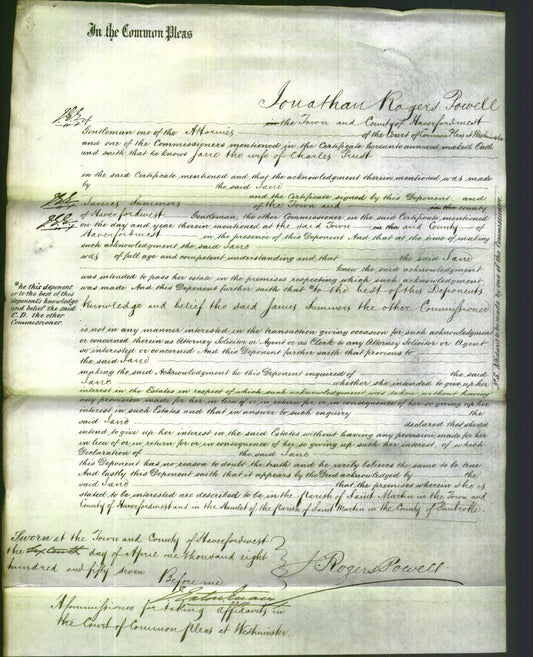 In the Common Pleas
Jonathan Rogers Powell
of in the Town and County of Haverfordwest
Gentleman one of the Attornies of the Court of Common Pleas at Westminster
and one of the Commissioners mentioned in the Certificate hereunto annexed maketh Oath
and saith that he knows Jane the wife of Charles Trust
in the said Certificate mentioned and that the acknowledgment therein mentioned was made
by the said Jane
and the Certificate signed by this Deponent and
James Summers of the Town and in the county
of Haverfordwest Gentleman, the other Commissioner in the said Certificate mentioned
on the day and year therein mentioned at the said Town in the and County of
Haverfordwest in the presence of this Deponent And that at the time of making
such acknowledgment the said Jane
was of full age and competent understanding and that the said Jane
knew the said acknowledgment
was intended to pass her estate in the premises respecting which such acknowledgment
was made And this Deponent further saith that *to the best of this Deponents
knowledge and belief the said James Summers the other Commissioner
*he this deponent
or to the best of this
deponents knowledge
and belief the said
C.D. the other
Commissioner.
is not in any manner interested in the transaction giving occasion for such acknowledgment
or concerned therein as Attorney Solicitor or Agent or as Clerk to any Attorney Solicitor or Agent
so interested or concerned And this Deponent further saith that previous to
the said Jane
making the said Acknowledgment he this Deponent enquired of the said
Jane whether she intended to give up her
interest in the Estates in respect of which such acknowledgment was taken without having
any provision made for her in lieu of or in return for or in consequence of her so giving up her
interest in such Estates and that in answer to such enquiry the
said Jane declared that she did
intend to give up her interest in the said Estates without having any provision made for her
in lieu of or in return for or in consequence of her so giving up such her interest, of which
Declaration of the said Jane
this Deponent has no reason to doubt the truth and he verily believes the same to be true
And lastly this Deponent saith that it appears by the Deed acknowledged by the
said Jane that the premises wherein she is
stated to be interested are described to be in the parish of Saint Martin in the Town and
County of Haverfordwest and in the Hamlet of the parish of Saint Martin in the County of Pembroke.
N.B. Affidavit to be made by one of the Commissioners.
Sworn at the Town and County of Haverfordwest
the Sixteenth day of April one thousand eight
hundred and fifty seven
Before me
J Rogers Powell
A Commissioner for taking Affidavits in
the Court of Common Pleas at Westminster.